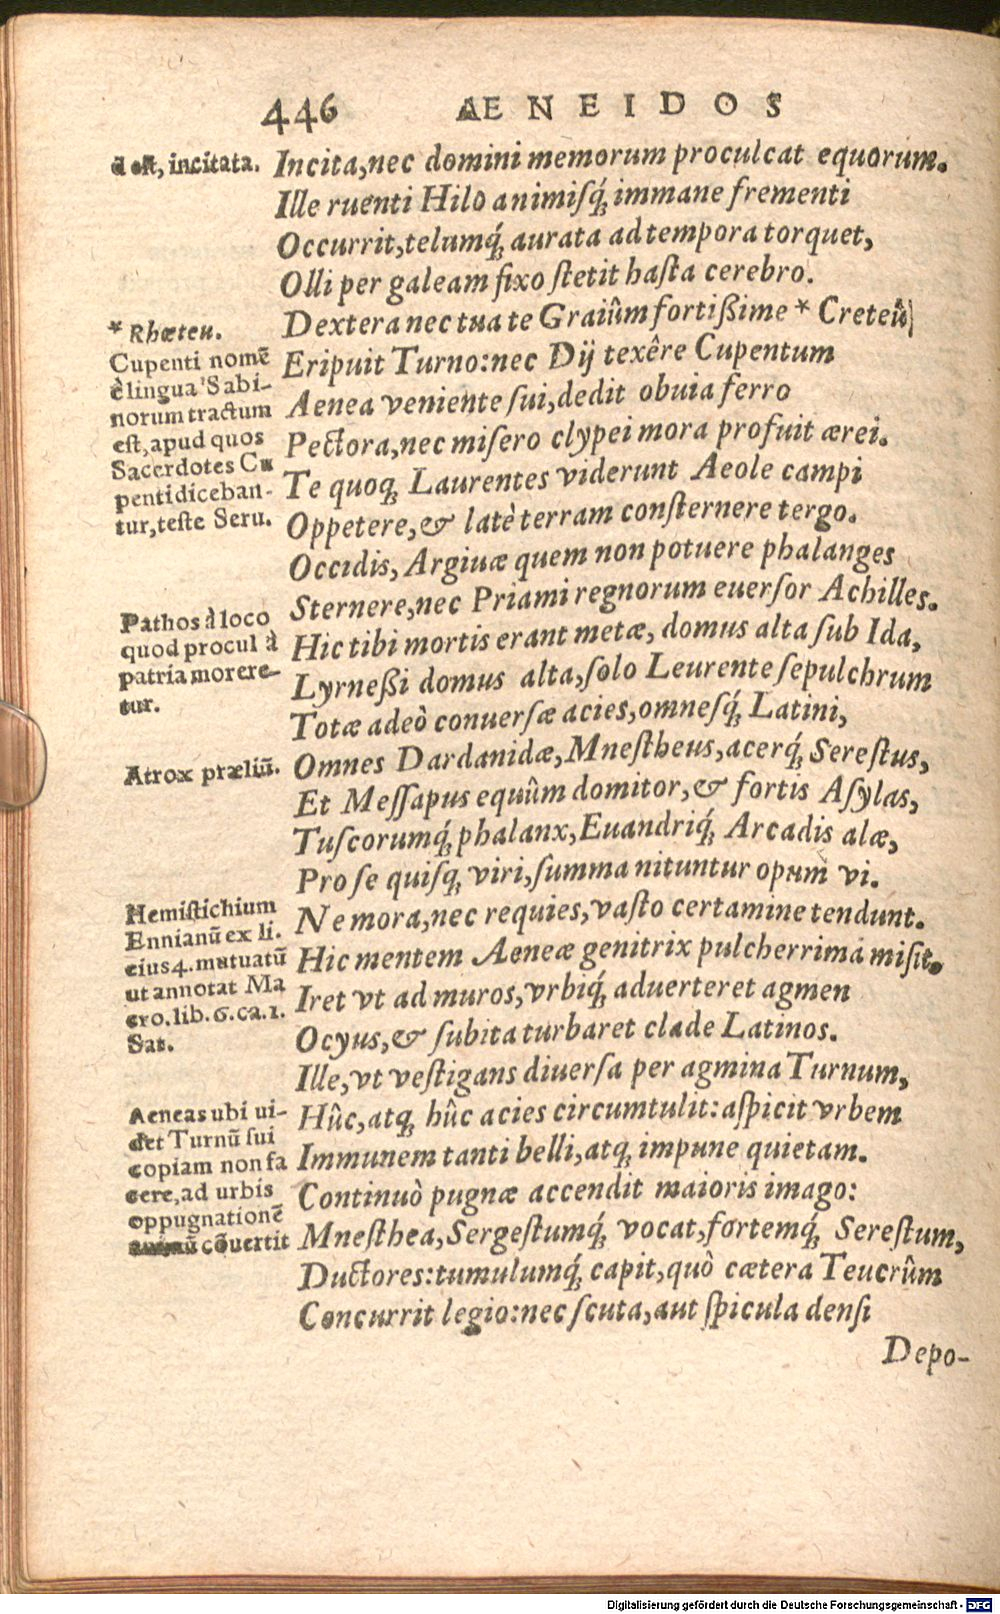 446 AENEIDOS
d est, incitata.
Incita,nec domini memorum proculcat equorum.
Ille ruenti Hilo animiſq́; immane frementi
Occurrit,telumq́; aurata ad tempora torquet,
Olli per galeam fixo ſtetit haſta cerebro.
Dextera nec tua te Graiûm fortißime * Creteû
* Rhœteu.
Eripuit Turno:nec Dij texêre Cupentum
Aenea veniente ſui,dedit obuia ferro
Pectora,nec miſero clypei mora profuit ærei.
Te quoq; Laurentes viderunt Aeole campi
Oppetere,& latè terram conſternere tergo.
Cupenti nomē
è lingua Sabi-
norum tractum
eſt,apud quos
Sacerdotes Cu
penti diceban-
tur,teſte Seru.
Occidis, Argiuæ quem non potuere phalanges
Sternere,nec Priami regnorum euerſor Achilles.
Hic tibi mortis erant metæ, domus alta ſub Ida,
Lyrneßi domus alta,ſolo Leurente ſepulchrum
Pathos à loco
quod procul à
patria morere-
tur.
Totæ adeò conuerſæ acies,omneſq́; Latini,
Omnes Dardanidæ,Mneſtheus,acerq́; Sereſtus,
Atrox præliū.
Et Meſſapus equûm domitor,& fortis Aſylas,
Tuſcorumq́; phalanx,Euandriq́; Arcadis alæ,
Pro ſe quiſq; viri,ſumma nituntur opum vi.
Ne mora,nec requies,vaſto certamine tendunt.
Hic mentem Aeneæ genitrix pulcherrima miſit.
Iret vt ad muros,vrbiq́; aduerteret agmen
Ocyus,& ſubita turbaret clade Latinos.
Hemiſtichium
Ennianū ex li.
eius 4. mutuatū
ut annotat Ma
cro.lib.6.ca.1.
Sat.
Ille,vt veſtigans diuerſa per agmina Turnum,
Hûc,atq; hûc acies circumtulit:aſpicit vrbem
Immunem tanti belli,atq; impune quietam.
Continuò pugnæ accendit maioris imago:
Mneſthea,Sergeſtumq́; vocat,fortemq́; Sereſtum,
Aeneas ubi ui-
det Turnū ſui
copiam non fa
cere,ad urbis
oppugnationē
animū cōuertit
Ductores:tumulumq́; capit,quò cætera Teucrûm
Concurrit legio:nec ſcuta,aut ſpicula denſi
Depo-
Digitalisierung gefördert durch die Deutsche Forschungsgemeinschaft - DFG